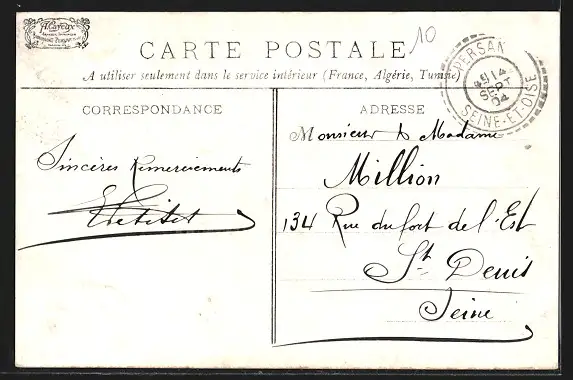 A. Cayeux
CARTE POSTALE
10
A utiliser seulement dans le service intérieur (France, Algérie, Tunisie)
PERSAN
14
SEPT
04
SEINE-ET-OISE
CORRESPONDANCE
Sincères Remerciements
ADRESSE
Monsieur & Madame
Million
134 Rue du fort de l'Est
St Denis
Seine